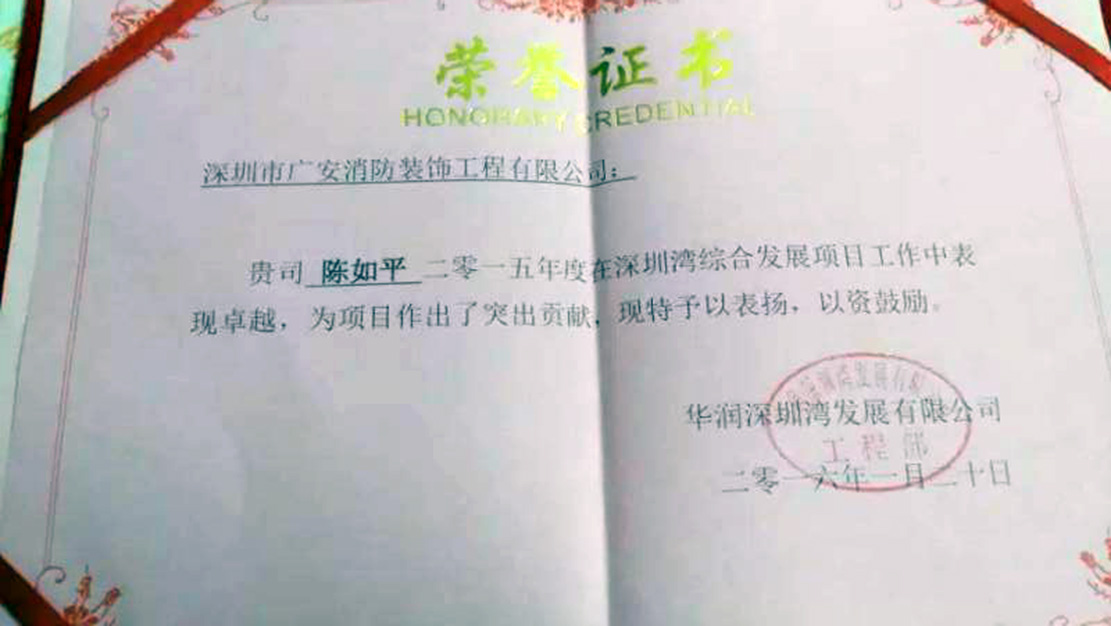 荣誉证书
HONORARY CREDENTIAL
深圳市广安消防装饰工程有限公司：
贵司 陈如平 二零一五年度在深圳湾综合发展项目工作中表
现卓越，为项目作出了突出贡献，现特予以表扬，以资鼓励。
华润深圳湾发展有限公司
工程部
二零一六年一月二十日